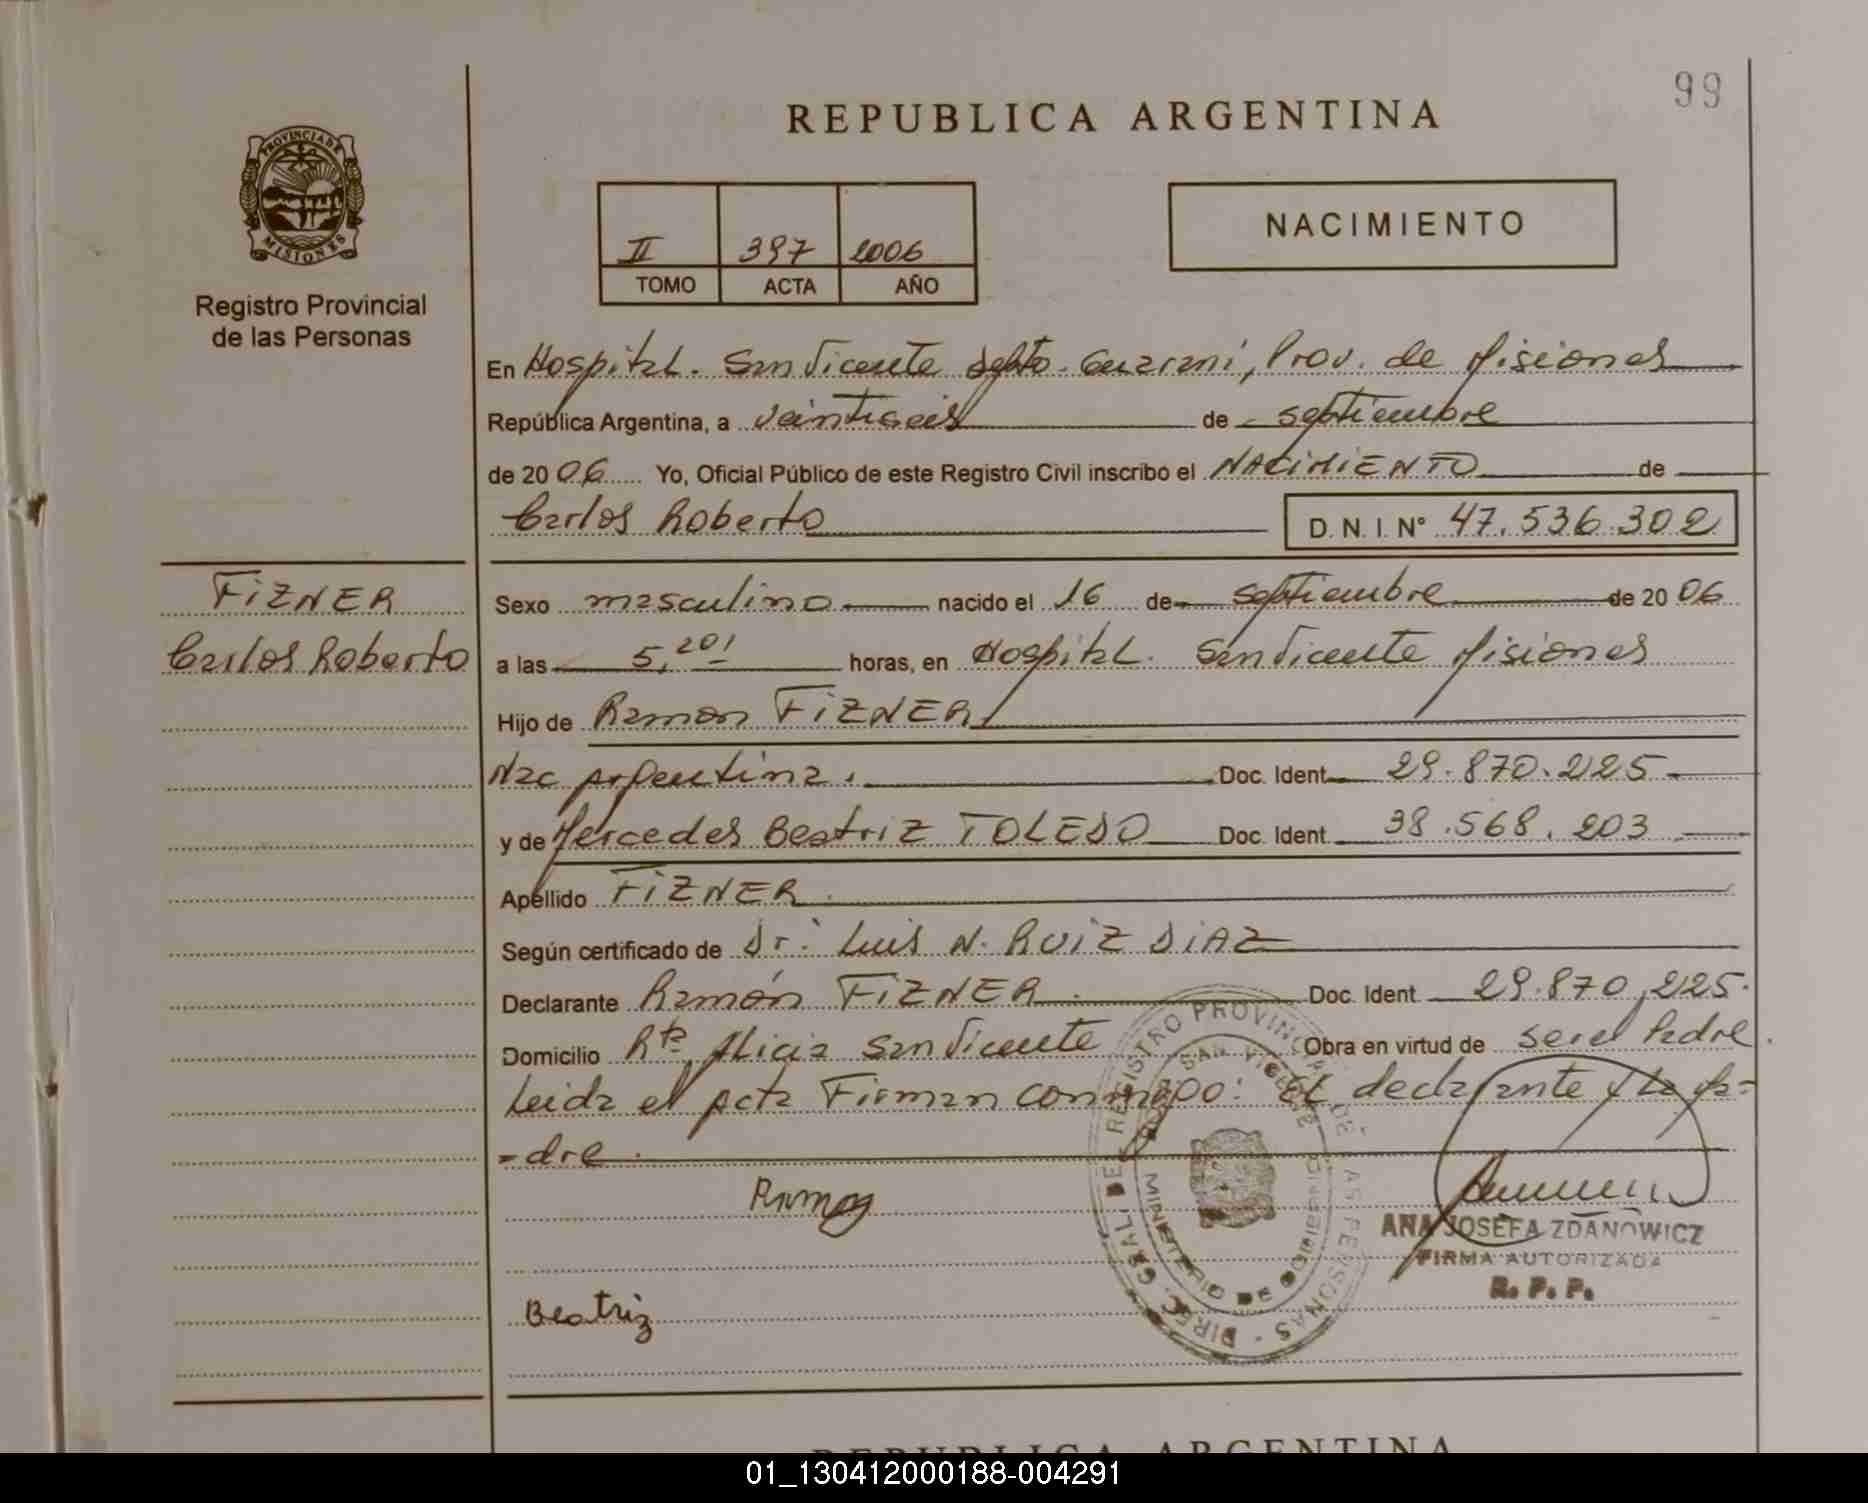 99
REPUBLICA ARGENTINA
PROVINCIA DE
MISIONES
Registro Provincial
de las Personas
II 397 2006
TOMO ACTA AÑO
NACIMIENTO
En Hospital. San Vicente Dpto. Guarani, Prov. de Misiones
República Argentina, a veintiseis de septiembre
de 2006 Yo, Oficial Público de este Registro Civil inscribo el NACIMIENTO de
Carlos Roberto D.N.I. N° 47.536.302
FIZNER
Carlos Roberto
Sexo masculino nacido el 16 de septiembre de 2006
a las 5,20' horas, en Hospital. San Vicente Misiones
Hijo de Ramon FIZNER
Nac Argentina. Doc. Ident. 29.870.225
y de Mercedes Beatriz TOLEDO Doc. Ident. 38.568.203
Apellido FIZNER.
Según certificado de Dr. Luis N. RUIZ DIAZ
Declarante Ramón FIZNER. Doc. Ident. 29.870.225.
Domicilio Rte. Alicia San Vicente Obra en virtud de ser el Padre.
Leida el Acta Firman conmigo: El declarante y la Ma=
=dre.
Ramon
Beatriz
DIREC. GRAL. DE REGISTRO PROVINCIAL DE LAS PERSONAS
SAN VICENTE
MINISTERIO DE GOBIERNO
ANA JOSEFA ZDANOWICZ
FIRMA AUTORIZADA
R. P. P.
REPUBLICA ARGENTINA
01_130412000188-004291